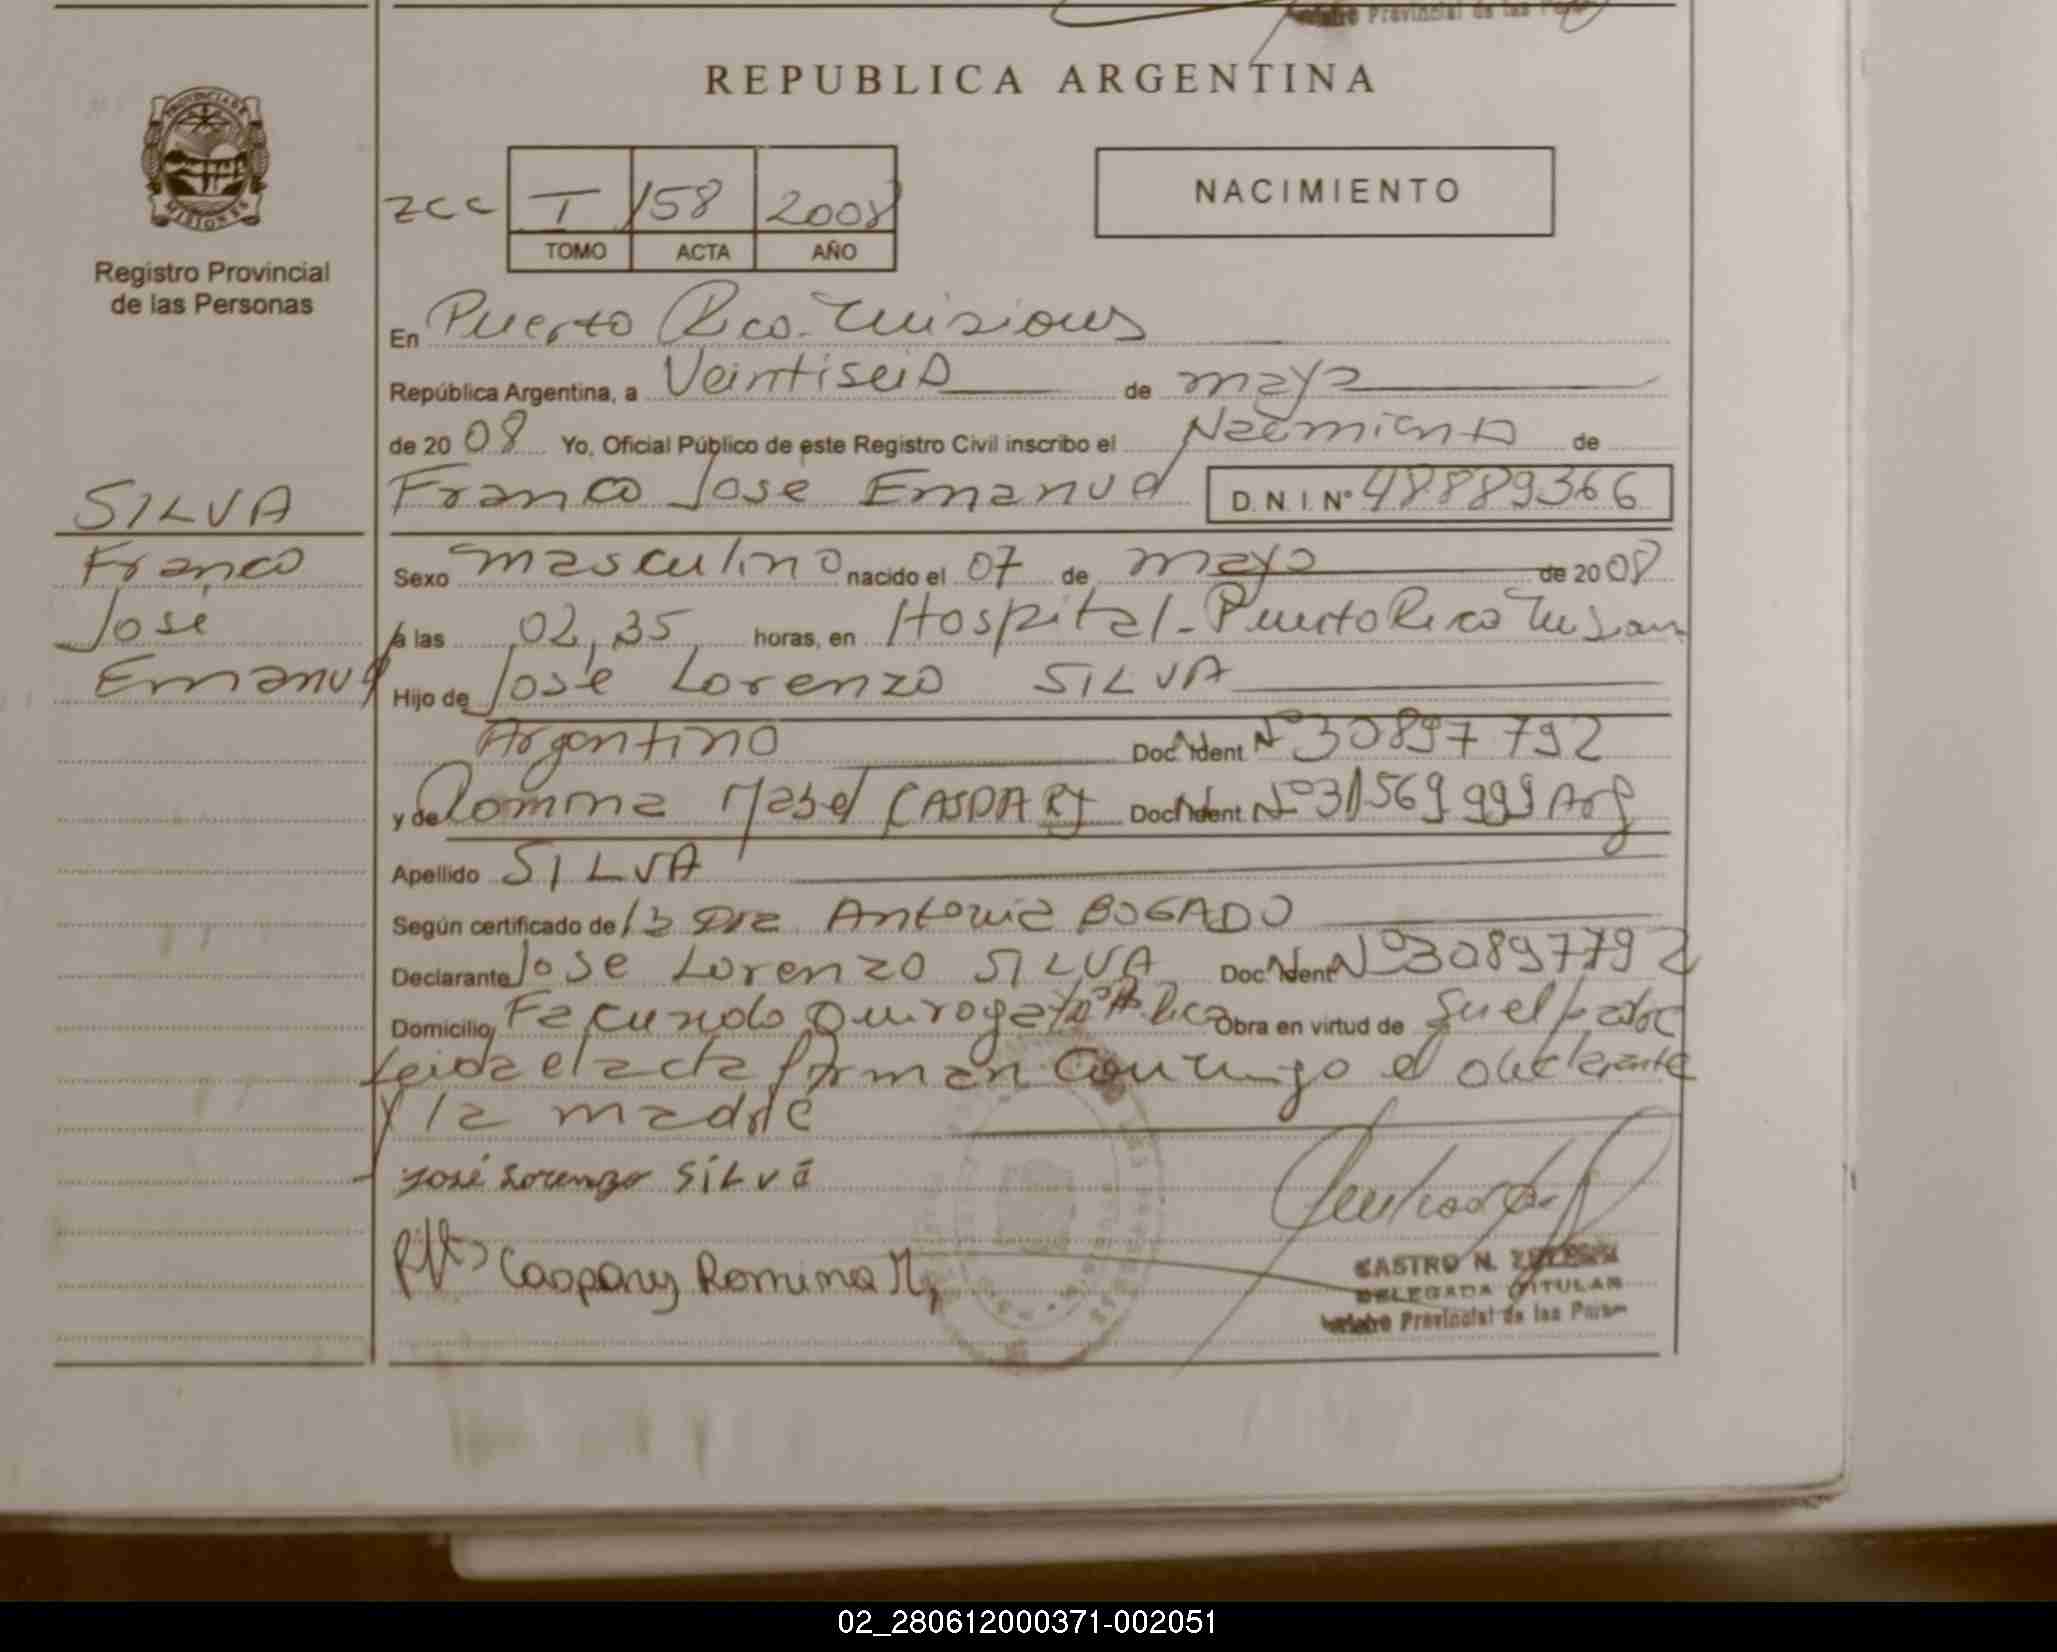 Provincial de las Pers
REPUBLICA ARGENTINA
PROVINCIA DE MISIONES
Registro Provincial
de las Personas
2CC
I 158 2008
TOMO ACTA AÑO
NACIMIENTO
En Puerto Rico. Misiones
República Argentina, a Veintiseis de mayo
de 20 08 Yo, Oficial Público de este Registro Civil inscribo el Nacimiento de
Franco José Emanuel D.N.I. N° 48889366
SILVA
Franco
José
Emanuel
Sexo masculino nacido el 07 de mayo de 20 08
a las 02,35 horas, en Hospital - Puerto Rico Mision
Hijo de José Lorenzo SILVA
Argentino Doc. Ident N° 30897792
y de Romina Mabel CASPARY Doc. Ident. N° 31569999 Arg
Apellido SILVA
Según certificado de la Dra Antonia BOGADO
Declarante José Lorenzo SILVA Doc. Ident N° 30897792
Domicilio Facundo Quiroga Rico Obra en virtud de Ser el padre
Leida el acta firman conmigo el declarante
y la madre
José Lorenzo SILVA
Caspary Romina M.
CASTRO N.
DELEGADA TITULAR
Provincial de las Pers
02_280612000371-002051